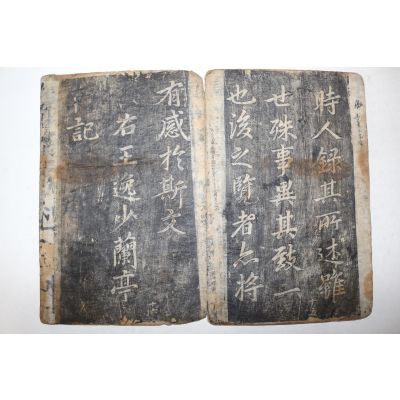 時人録其所述雖
世殊事異其致一
也後之覧者亦将
有感於斯文
右王逸少蘭亭
記